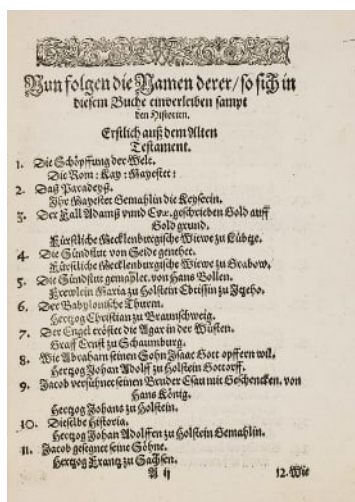 Nun folgen die Namen derer/ so sich in
diesem Buche einverleiben sampt
den Historien.
Erstlich auß dem Alten
Testament.
1. Die Schöpffung der Welt.
Die Rom: Kay: Mayestet:
2. Daß Paradeyß.
Ihr Mayestet Gemahlin die Keyserin.
3. Der Fall Adamß vnnd Evæ, geschrieben Gold auff
Gold grund.
Fürstliche Mecklenburgische Witwe zu Lübtze.
4. Die Sündflut von Seide genehet.
Fürstliche Mecklenburgische Witwe zu Grabow.
5. Die Sündflut gemahlet, von Hans Bollen.
Frewlein Maria zu Holstein Ebtissin zu Itzeho.
6. Der Babylonische Thurm.
Hertzog Christian zu Braunschweig.
7. Der Engel tröstet die Agar in der Wüsten.
Graff Ernst zu Schaumburg.
8. Wie Abraham seinen Sohn Isaac Gott opffern wil.
Hertzog Johan Adolff zu Holstein Gottorff.
9. Jacob versühnet seinen Bruder Esau mit Geschencken, von
Hans König.
Hertzog Johans zu Holstein.
10. Dieselbe Historia.
Hertzog Johan Adolffen zu Holstein Gemahlin.
11. Jacob gesegnet seine Söhne.
Hertzog Frantz zu Sachsen.
A ij 12. Wie